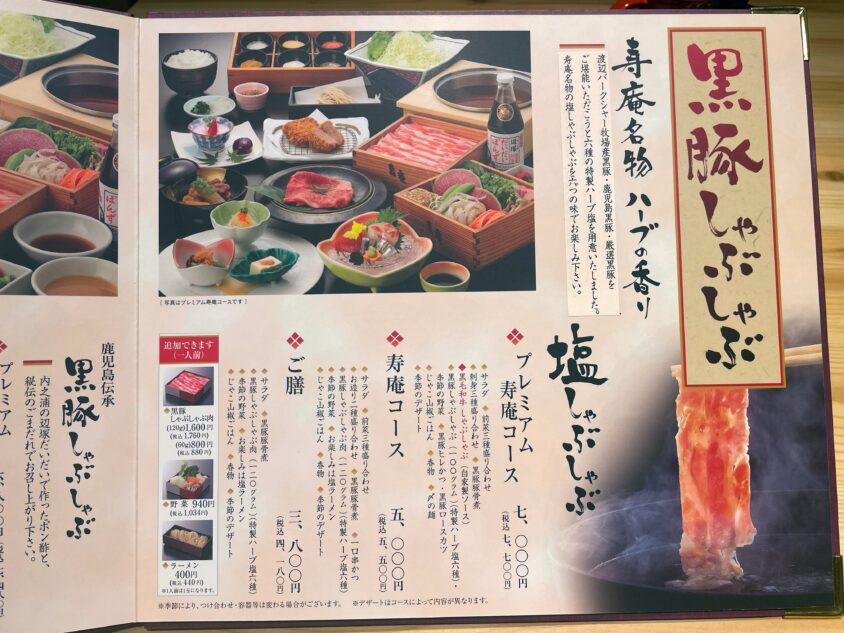 黒豚しゃぶしゃぶ
寿庵名物 ハーブの香り
塩しゃぶしゃぶ
渡辺バークシャー牧場産黒豚・鹿児島黒豚・厳選黒豚を
ご堪能いただこうと六種の特製ハーブ塩を用意いたしました。
寿庵名物の塩しゃぶしゃぶを六つの味でお楽しみ下さい。
[ 写真はプレミアム寿庵コースです ]
プレミアム
寿庵コース 七、〇〇〇円
(税込 七、七〇〇円)
サラダ ◆ 前菜三種盛り合わせ
刺身三種盛り合わせ ◆ 黒豚豚骨煮
◆黒毛和牛しゃぶしゃぶ (自家製ソース)
黒豚しゃぶしゃぶ (一〇〇グラム) (特製ハーブ塩六種)・
季節の野菜 ◆ 黒豚ヒレかつ・黒豚ロースカツ
じゃこ山椒ごはん ◆ 香物 ◆ 〆の麺
季節のデザート
寿庵コース 五、〇〇〇円
(税込 五、五〇〇円)
サラダ ◆ 前菜三種盛り合わせ
お造り二種盛り合わせ ◆ 黒豚豚骨煮 ◆ 一口串かつ
黒豚しゃぶしゃぶ肉 (一二〇グラム) (特製ハーブ塩六種)
季節の野菜 ◆ お楽しみは塩ラーメン
じゃこ山椒ごはん ◆ 香物 ◆ 季節のデザート
ご膳 三、八〇〇円
(税込 四、一八〇円)
サラダ ◆ 黒豚豚骨煮
黒豚しゃぶしゃぶ肉 (一二〇グラム) (特製ハーブ塩六種)
季節の野菜 ◆ お楽しみは塩ラーメン
じゃこ山椒ごはん ◆ 香物 ◆ 季節のデザート
追加できます
(一人前)
◆黒豚
しゃぶしゃぶ肉
(120g)1,600円
(税込 1,760円)
(60g)800円
(税込 880円)
◆野菜 940円
(税込 1,034円)
◆ラーメン
400円
(税込 440円)
※1人前は1玉になります。
※季節により、つけ合わせ・容器等は変わる場合がございます。 ※デザートはコースによって内容が異なります。
鹿児島伝承
黒豚しゃぶしゃぶ
内之浦の辺塚だいだいで作ったポン酢と、
秘伝のごまだれでお召し上がり下さい。
プレミアム